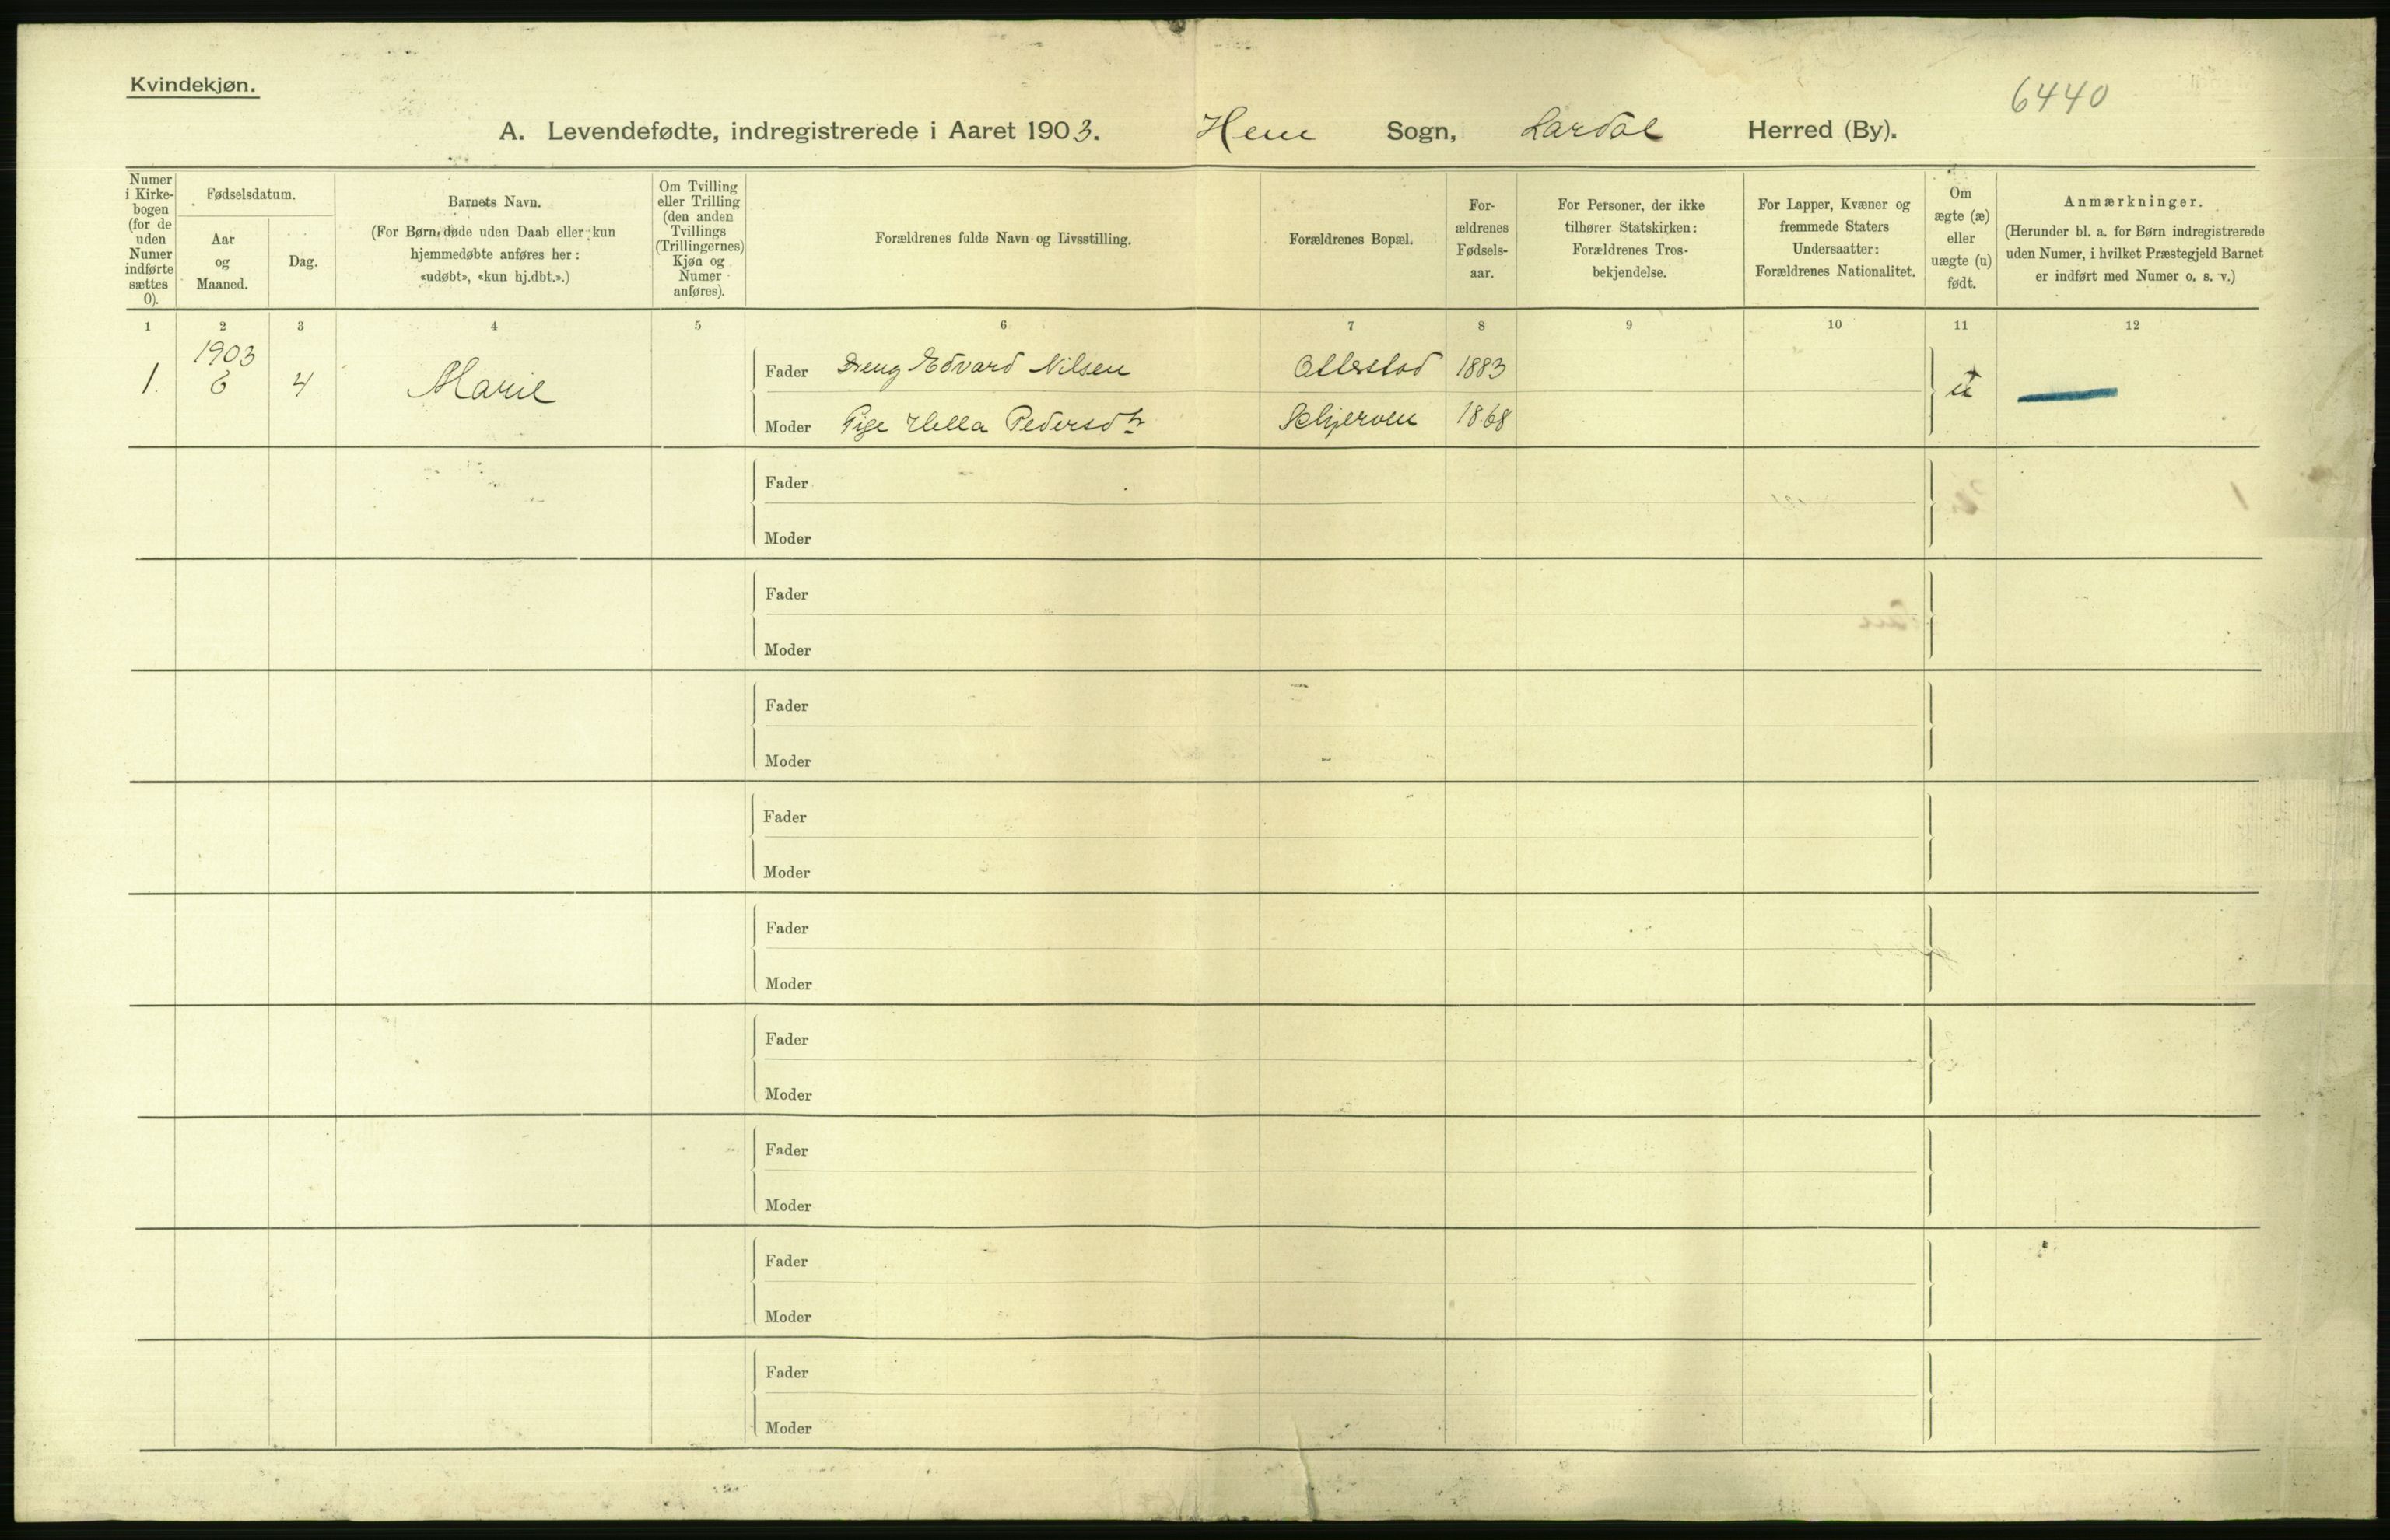 Kvindekjøn.
6440
A. Levendefødte, indregistrerede i Aaret 1903. Hem Sogn, Lardal Herred (By).
Numer i Kirkebogen (for de uden Numer indførte sættes 0).
Fødselsdatum.
Aar og Maaned.
Dag.
Barnets Navn.
(For Børn, døde uden Daab eller kun
hjemmedøbte anføres her:
«udøbt», «kun hj.dbt.».)
Om Tvilling
eller Trilling
(den anden
Tvillings
(Trillingernes)
Kjøn og
Numer
anføres).
Forældrenes fulde Navn og Livsstilling.
Forældrenes Bopæl.
For-
ældrenes
Fødsels-
aar.
For Personer, der ikke
tilhører Statskirken:
Forældrenes Tros-
bekjendelse.
For Lapper, Kvæner og
fremmede Staters
Undersaatter:
Forældrenes Nationalitet.
Om
ægte (æ)
eller
uægte (u)
født.
Anmærkninger.
(Herunder bl. a. for Børn indregistrerede
uden Numer, i hvilket Præstegjeld Barnet
er indført med Numer o. s. v.)
1 2 3 4 5 6 7 8 9 10 11 12
1903
1. 6 4 Marie
Fader Dreng Edvard Nilsen 1883
u
Moder Pige Hella Pedersdtr Schjerven 1868
Fader
Moder
Fader
Moder
Fader
Moder
Fader
Moder
Fader
Moder
Fader
Moder
Fader
Moder
Fader
Moder
Fader
Moder